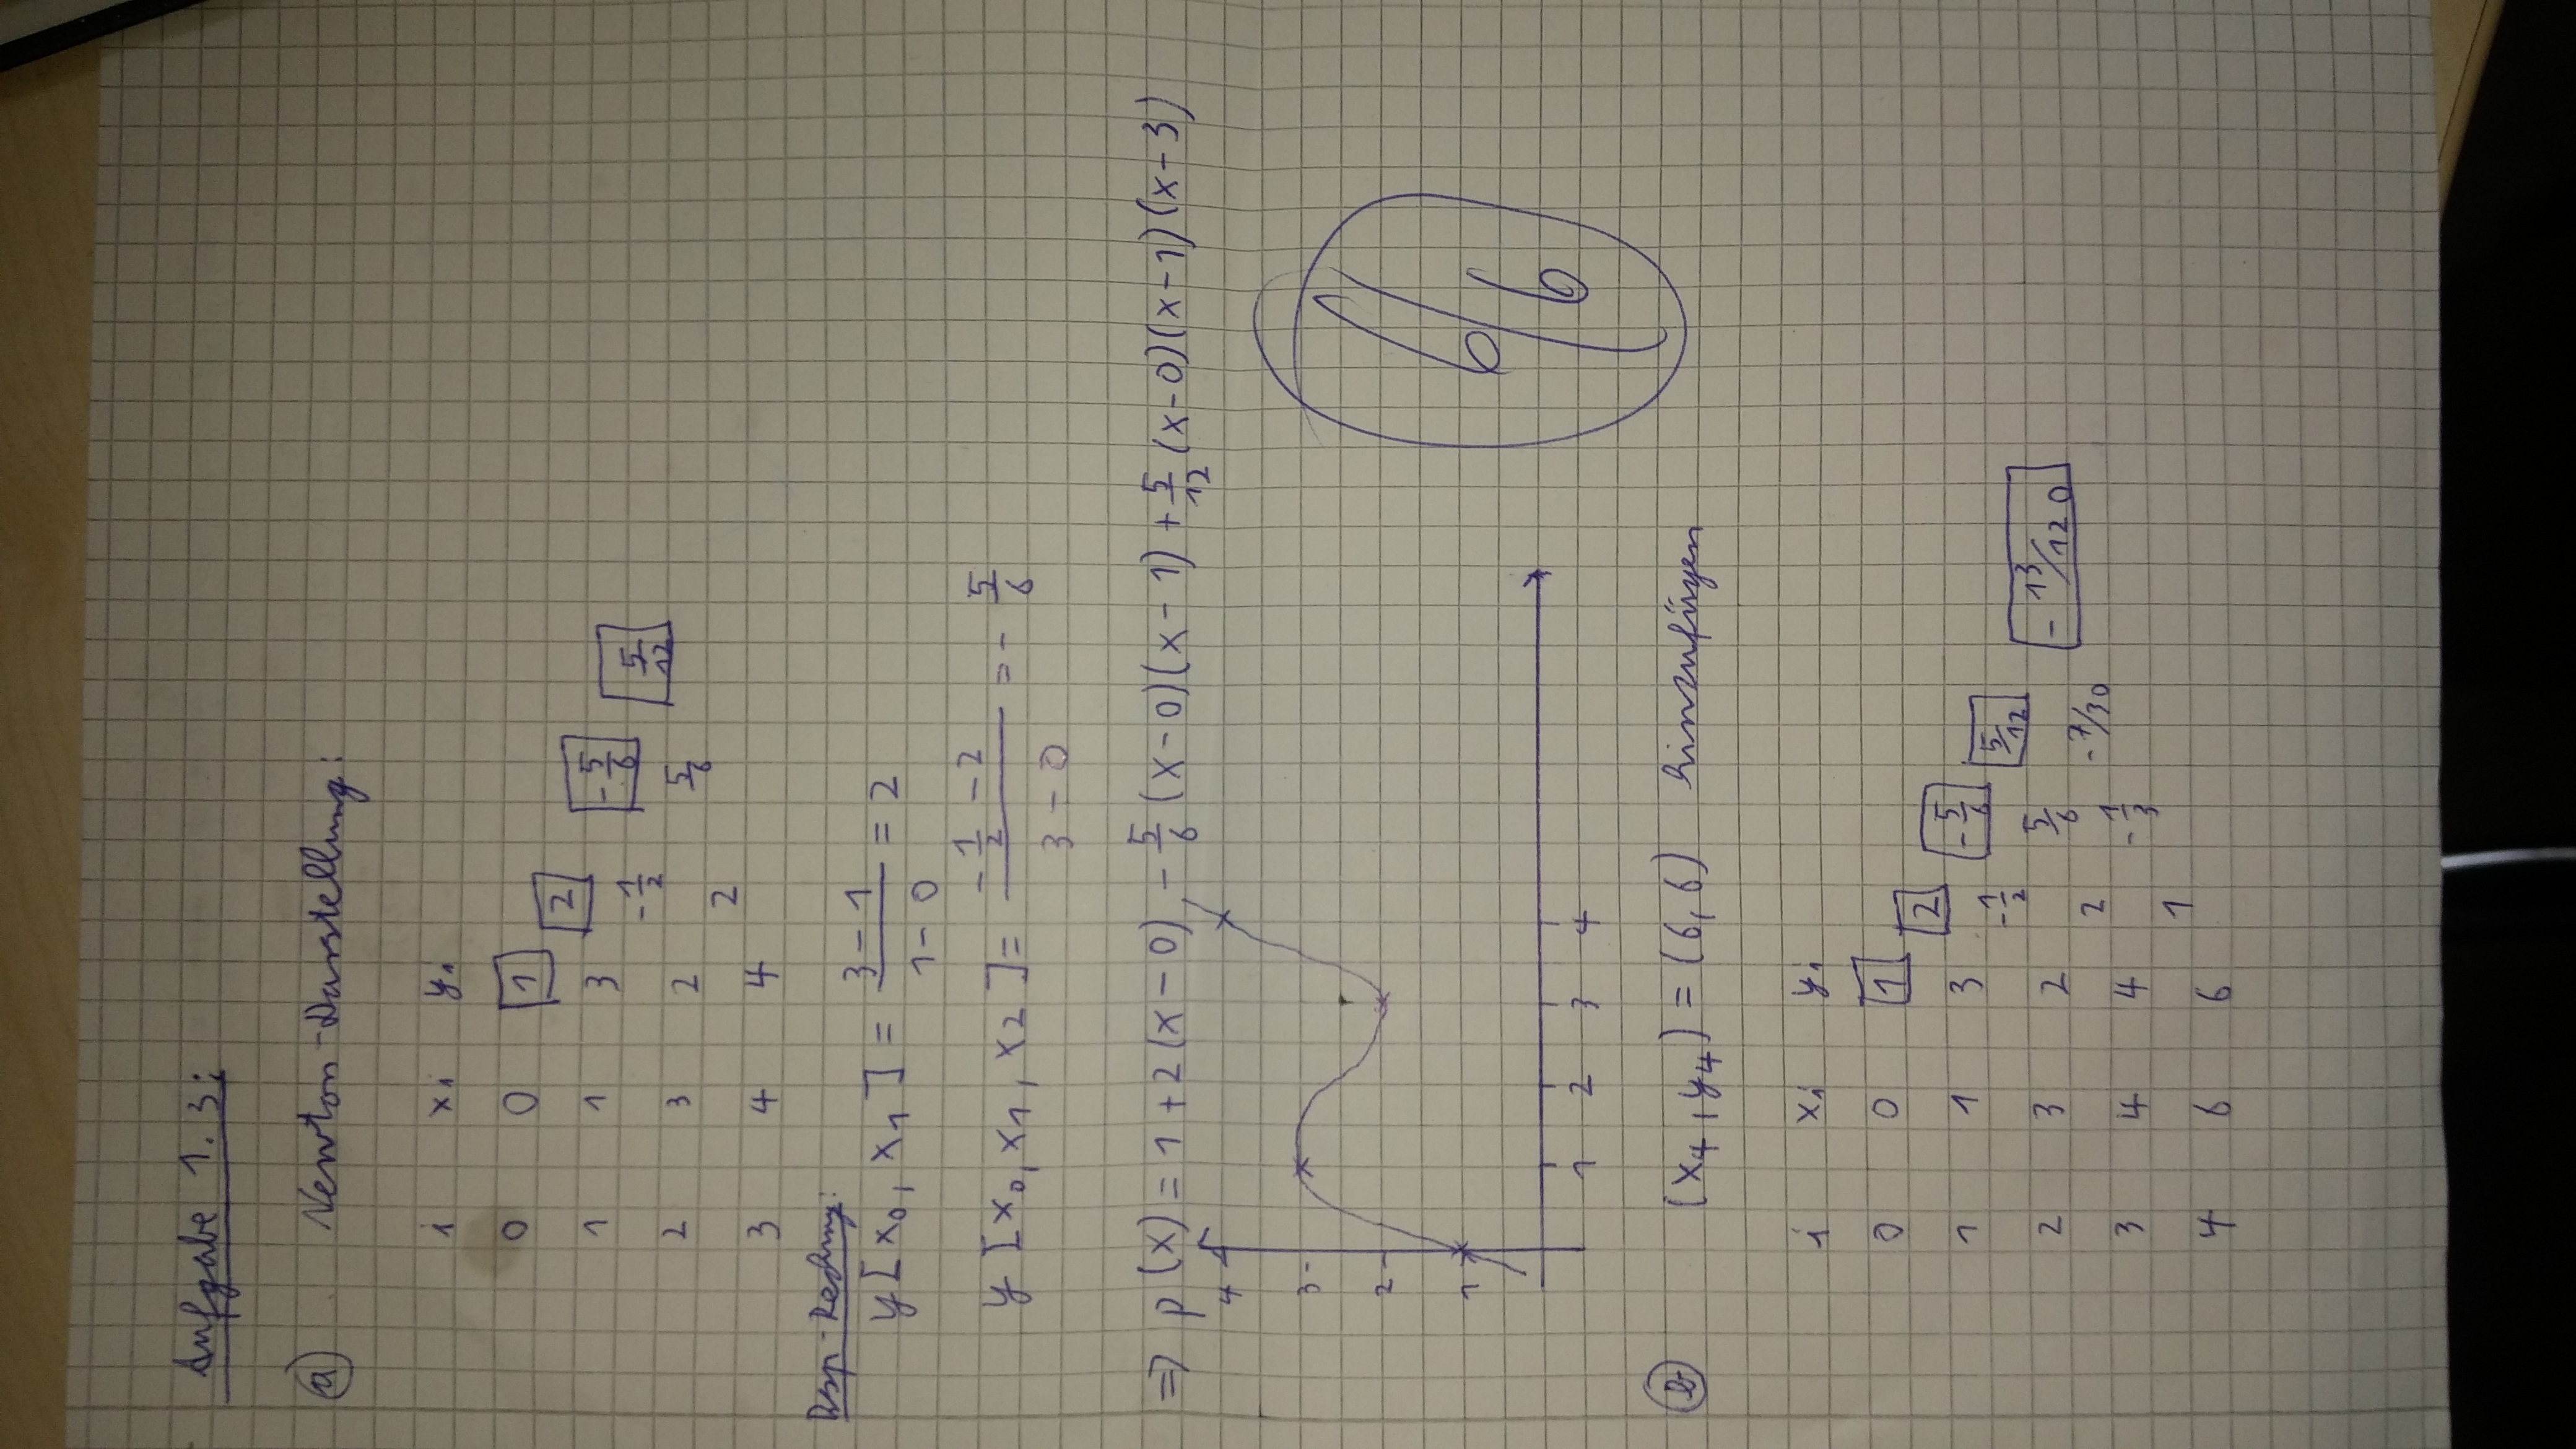 Aufgabe 1.3:
a) Newton-Darstellung:
i xi yi
0 0 1
2
1 1 3 -5/6
-1/2 5/12
2 3 2 5/6
2
3 4 4
Bsp-Rechnung:
y[x₀, x₁] = (3-1)/(1-0) = 2
y[x₀, x₁, x₂] = (-1/2 - 2)/(3-0) = -5/6
⇒ p(x) = 1 + 2(x-0) - 5/6 (x-0)(x-1) + 5/12 (x-0)(x-1)(x-3)
4
3
2
1
1 2 3 4
6/6
b) (x₄, y₄) = (6, 6) hinzufügen
i xi yi
0 0 1
2
1 1 3 -5/6
-1/2 5/12
2 3 2 5/6 -13/120
2 -7/30
3 4 4 -1/3
1
4 6 6